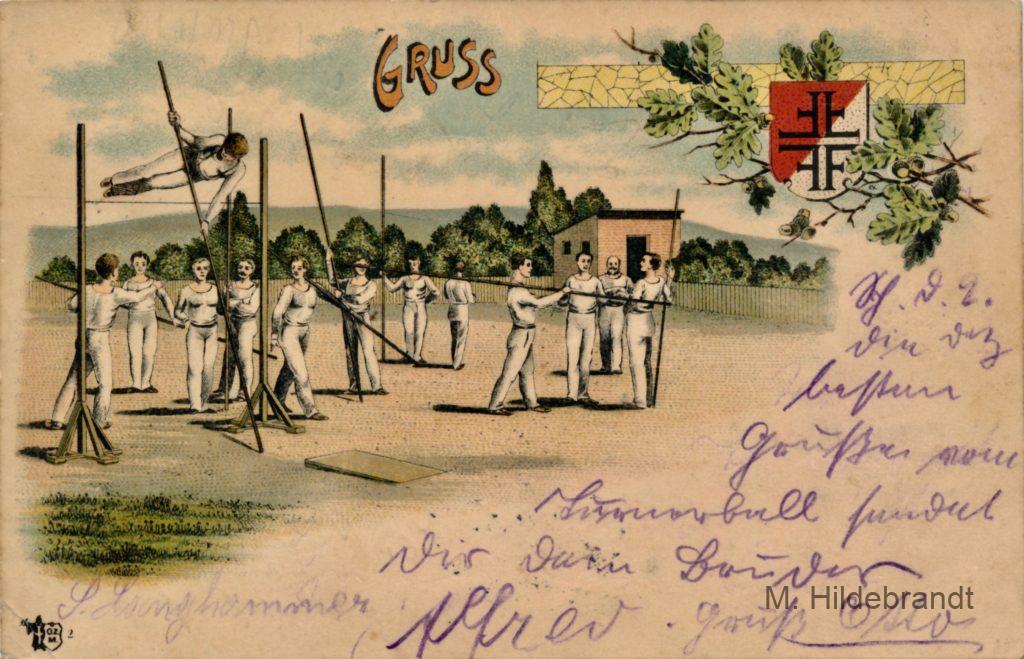 GRUSS
besten
Grüße vom
Turnerball sendet
Dir Dein Bruder
Alfred. Gruß Otto
S. Langhammer
M. Hildebrandt
O.Z.M.
2